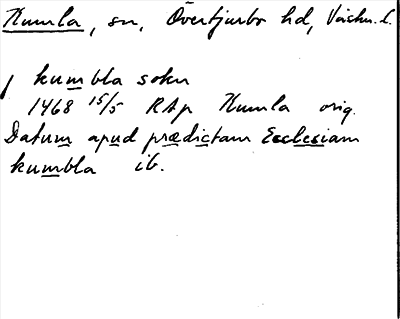 Kumla, sn, Övertjurbo hd, Västm. l.
kumbla sokn
1468 15/5 RAp Kumla orig.
Datum apud prædictam Ecclesiam
kumbla ib.